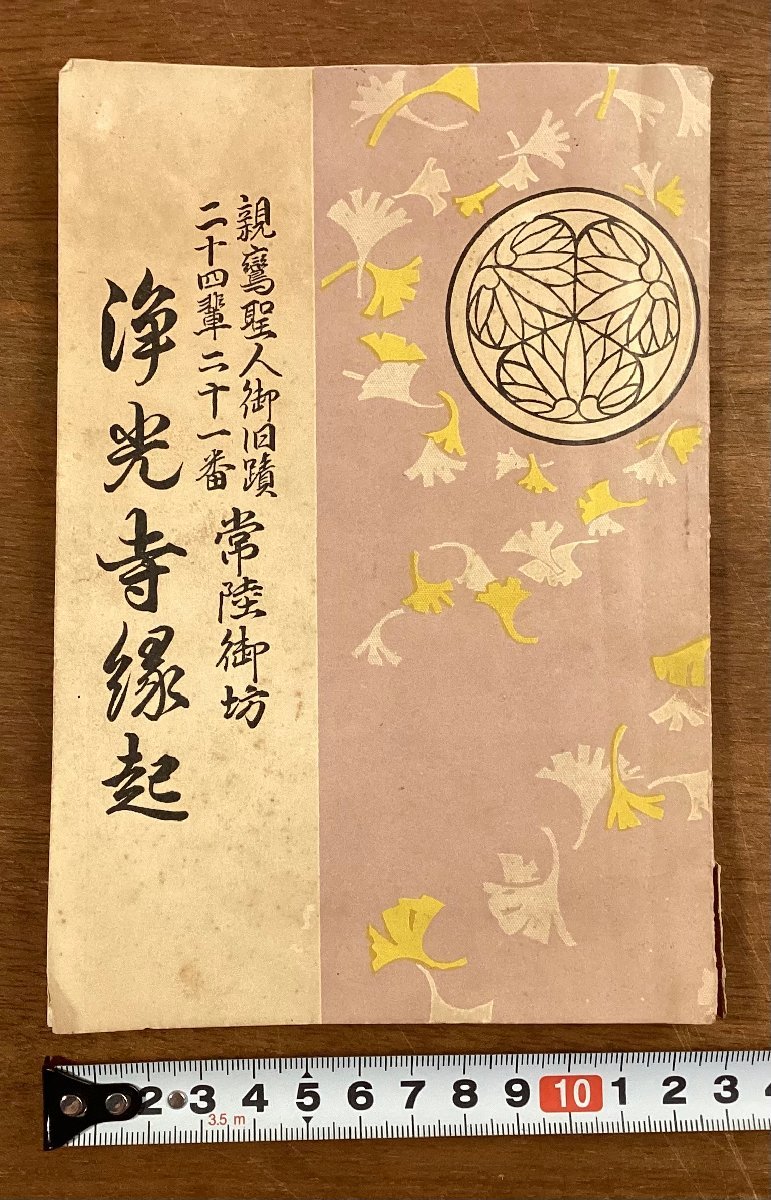 親鸞聖人御旧蹟
二十四輩二十一番
常陸御坊
浄光寺縁起
2 3 4 5 6 7 8 9 10 1 2 3 4
3.5 m